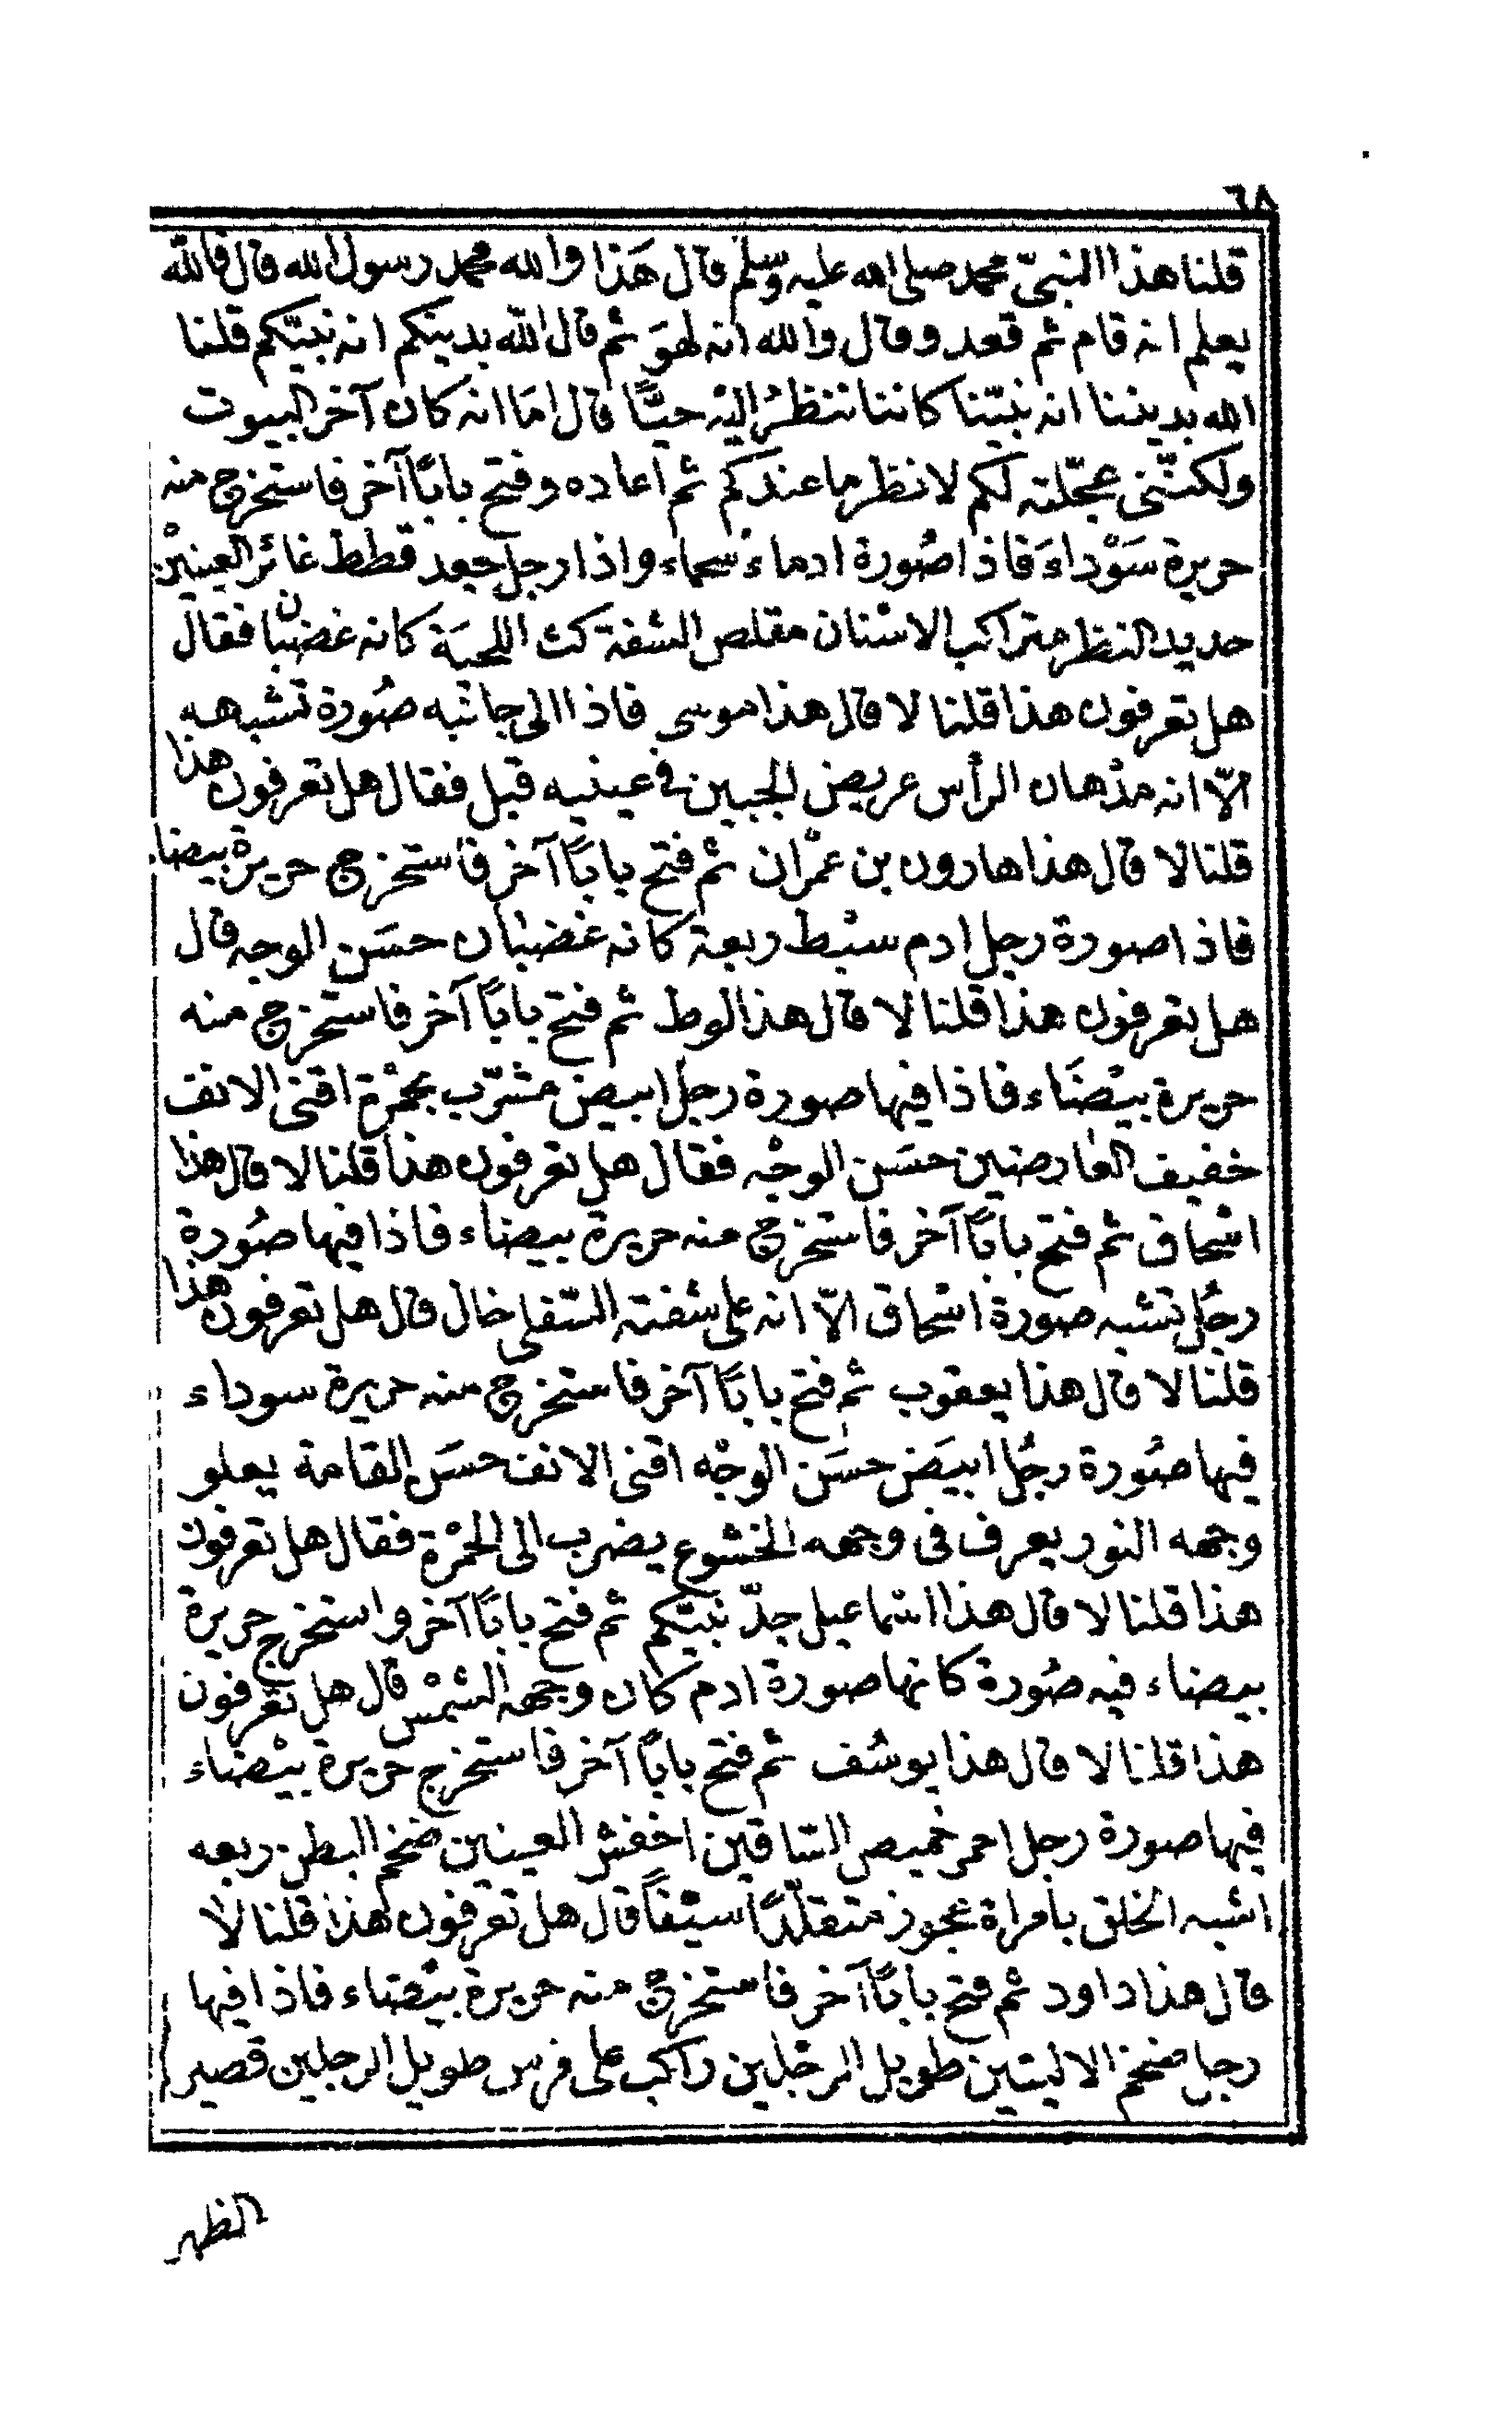 ٦٨
قلنا هذا النبىّ محمد صلى الله عليه وسلم قال هَذا والله محمد رسول الله قال فالله
يعلم انه قام ثم قعد وقال والله انه لهوَ ثم قال الله بدينكم انه نبيّكم قلنا
الله بديننا انه نبيّنا كاننا ننظرُ اليْه حيًّا قال امَا انه كان آخر البيوت
ولكنّنى عجّلته لكم لانظر ما عندكم ثم اعاده وفتح بابًا آخر فاستخرج منه
حريرة سَوْداءَ فاذا صُورة ادماء سحماء واذا رجل جعد قطط غائر العينيْن
حديد النظر متراكب الاسْنان مقلص الشفة كث اللحيَة كانه غضبان فقال
هل تعرفون هذا قلنا لا قال هذا موسى فاذا الى جانبه صُورة تشبهه
الّا انه مدْهان الرأس عريض الجبين فى عينيه قبل فقال هل تعرفون هذا
قلنا لا قال هذا هارون بن عمْران ثم فتح بابًا آخر فاستخرج حريرة بيضاء
فاذا صورة رجل ادم سبْط ربعة كانه غضبان حسَن الوجه قال
هل تعرفون هذا قلنا لا قال هذا لوط ثم فتح بابًا آخر فاستخرج منه
حريرة بيْضَاء فاذا فيها صورة رجل ابيض مشرّب بحمْرة اقنى الانف
خفيف العارضين حسَن الوجْه فقال هل تعرفون هذا قلنا لا قال هذا
اسْحاق ثم فتح بابًا آخر فاستخرج منه حريرة بيضاء فاذا فيها صُورة
رجُل تشبه صورة اسْحاق الّا انه على شفته السّفلى خال قال هل تعرفون هذا
قلنا لا قال هذا يعقوب ثم فتح بابًا آخر فاستخرج منه حريرة سوداء
فيها صُورة رجُل ابيَض حسَن الوجْه اقنى الانف حسَن القامة يعلو
وجهه النور يعرف فى وجهه الخشوع يضرب الى الحمْرة فقال هل تعرفون
هذا قلنا لا قال هذا اسْماعيل جدّ نبيّكم ثم فتح بابًا آخر واستخرج حريرة
بيضاء فيه صُورة كانها صورة ادم كان وجهه الشمْس قال هل تعْرفون
هذا قلنا لا قال هذا يوسُف ثم فتح بابًا آخر فاستخرج حريرة بيْضاء
فيها صورة رجل احمر خميص السّاقين اخفش العينين ضخم البطن ربعه
اشبه الخلق بامراة عجوز متقلّدًا سيْفًا قال هل تعْرفون هذا قلنا لا
قال هذا داود ثم فتح بابًا آخر فاستخرج منه حريرة بيْضاء فاذا فيها
رجل ضخم الاليتين طويل الرجْلين راكب على فرس طويل الرجلين قصير
الظهر